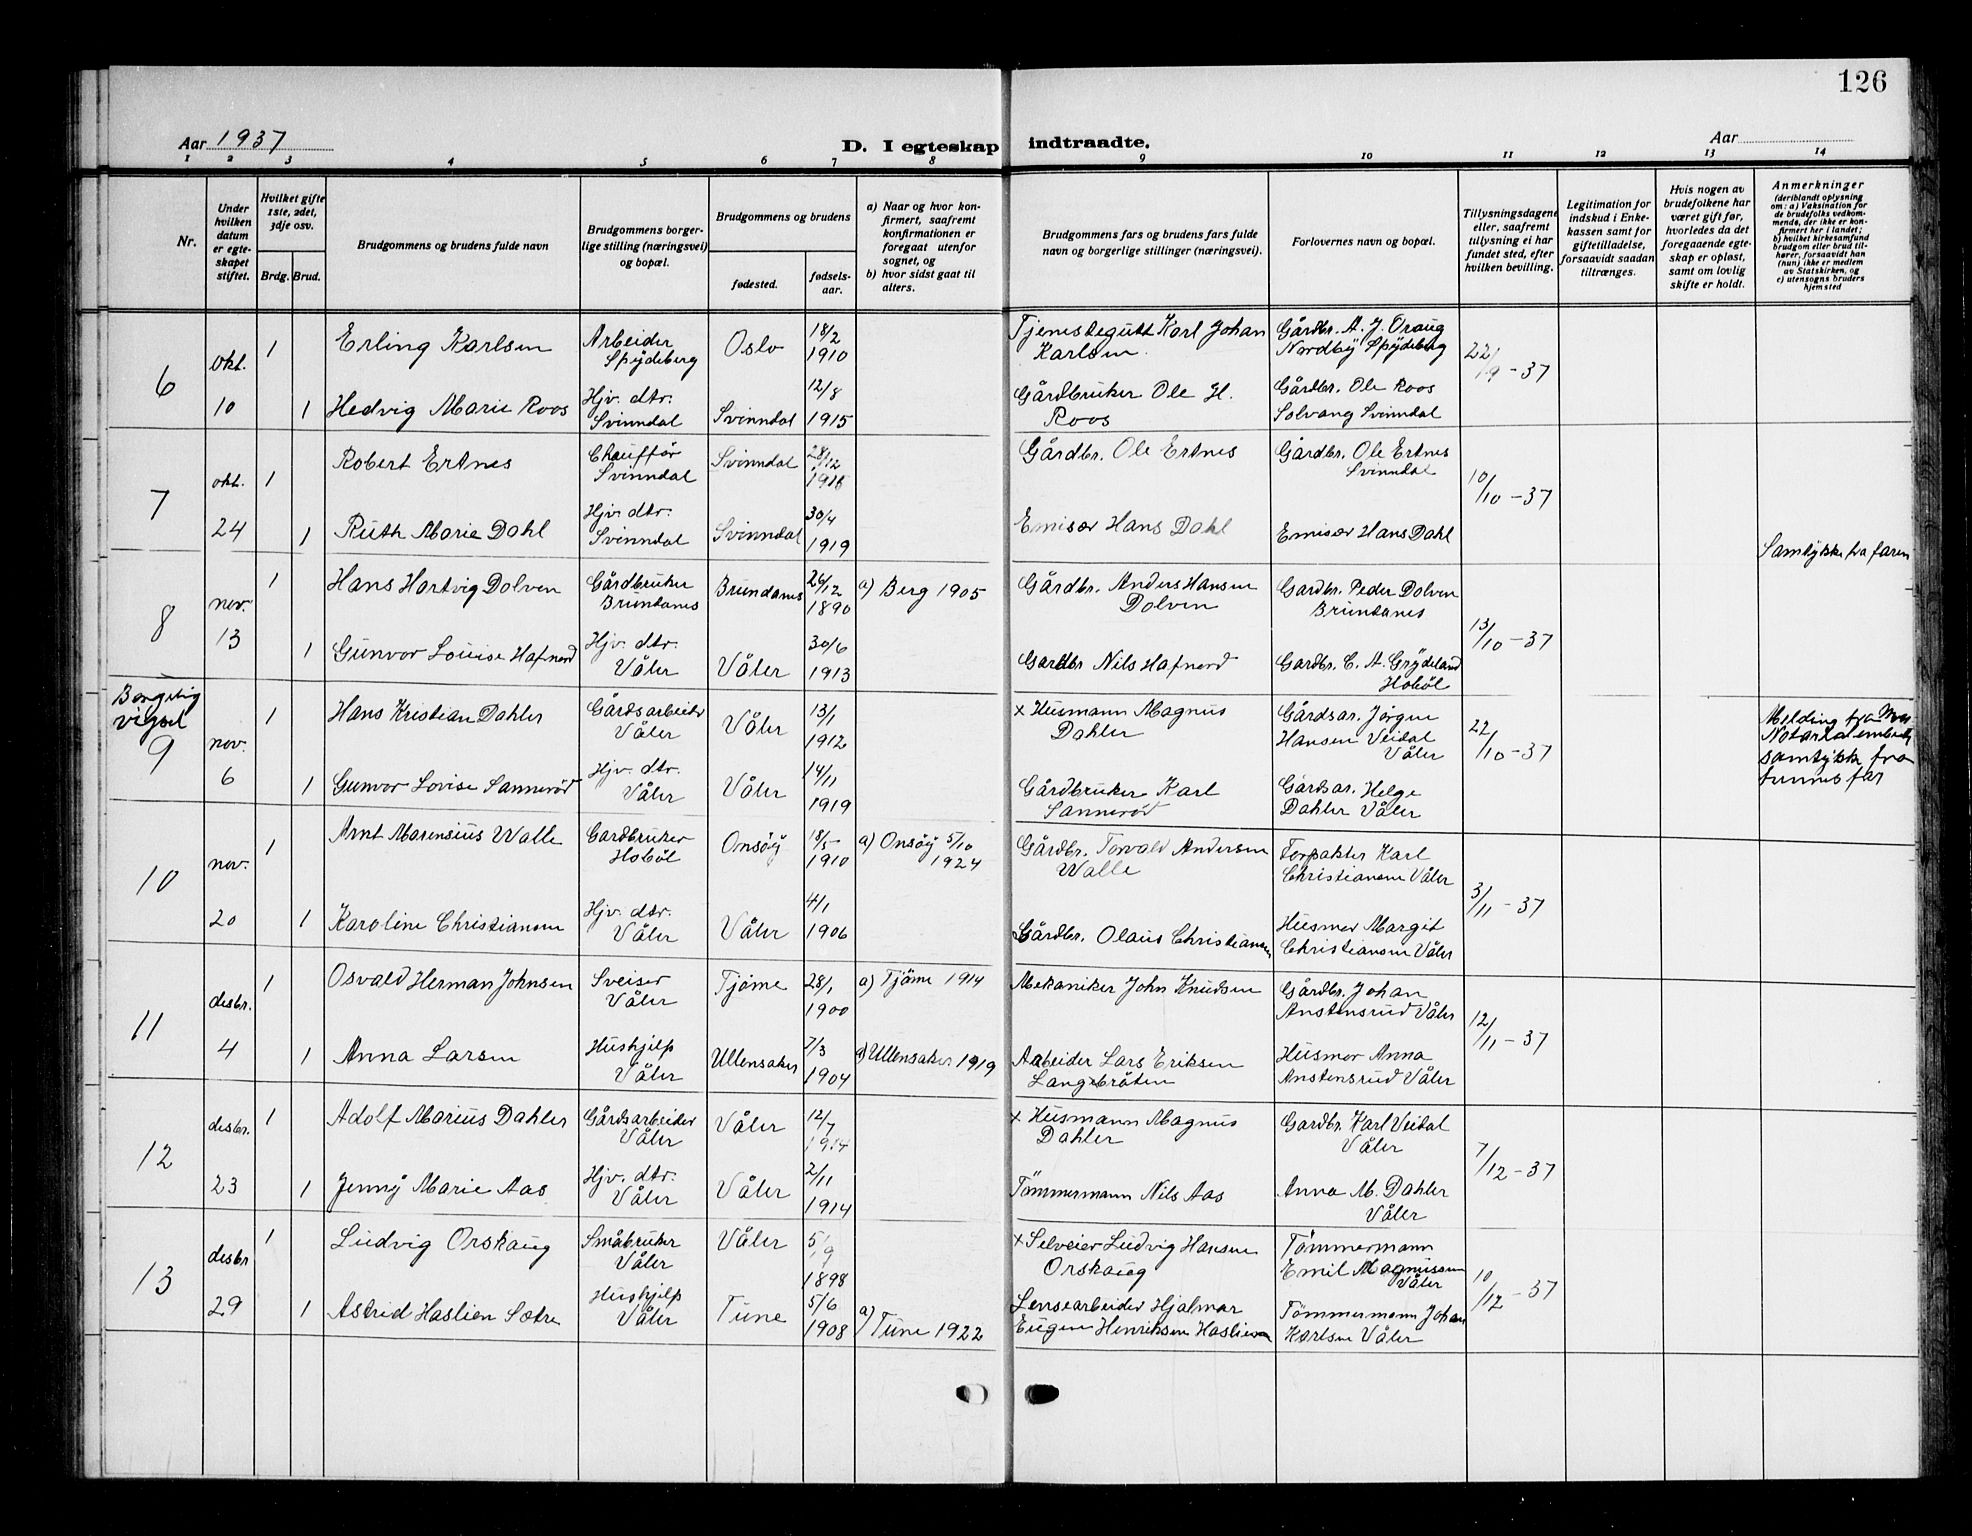 126
Aar 1937
D. I egteskap indtraadte.
Aar
1 2 3 4 5 6 7 8 9 10 11 12 13 14
Nr.
Under
hvilken
datum
er egte-
skapet
stiftet.
Hvilket gifte
1ste, 2det,
3dje osv.
Brdg. Brud.
Brudgommens og brudens fulde navn
Brudgommens borger-
lige stilling (næringsvei)
og bopæl.
Brudgommens og brudens
fødested.
fødsels-
aar.
a) Naar og hvor kon-
firmert, saafremt
konfirmationen er
foregaat utenfor
sognet, og
b) hvor sidst gaat til
alters.
Brudgommens fars og brudens fars fulde
navn og borgerlige stillinger (næringsvei).
Forlovernes navn og bopæl.
Tillysningsdagene
eller, saafremt
tillysning ei har
fundet sted, efter
hvilken bevilling.
Legitimation for
indskud i Enke-
kassen samt for
giftetilladelse,
forsaavidt saadan
tiltrænges.
Hvis nogen av
brudefolkene har
været gift før,
hvorledes da det
foregaaende egte-
skap er opløst,
samt om lovlig
skifte er holdt.
Anmerkninger
(deriblandt oplysning
om: a) Vaksination for
de brudefolks vedkom-
mende, der ikke er kon-
firmert her i landet;
b) hvilket kirkesamfund
brudgom eller brud til-
hører, forsaavidt han
(hun) ikke er medlem
av Statskirken, og
c) utensogns bruders
hjemsted
6
okt.
10
1
Erling Karlsen
Arbeider
Spydeberg
Oslo
18/2
1910
Tjenestegutt Karl Johan
Karlsen
Gårdbr. A. J. Oraug
Nordby Spydeberg
22/9-37
1
Hedvig Marie Roos
Hjv. dtr.
Svinndal
Svinndal
12/8
1915
Gårdbruker Ole H.
Roos
Gårdbr. Ole Roos
Solvang Svinndal
7
okt.
24
1
Robert Ertnes
Chauffør
Svinndal
Svinndal
28/12
Gårdbr. Ole Ertnes
Gårdbr. Ole Ertnes
Svinndal
10/10-37
1
Ruth Marie Dahl
Hjv. dtr.
Svinndal
Svinndal
30/4
1919
Emisær Hans Dahl
Emisær Hans Dahl
Samtykke fra faren
8
nov.
13
1
Hans Hartvig Dolven
Gårdbruker
Brundanes
Brundanes
26/12
1890
a) Berg 1905
Gårdbr. Anders Hansen
Dolven
Gardbr. Peder Dolven
Brundanes
13/10-37
1
Gunvor Louise Hafnord
Hjv. dtr.
Våler
Våler
30/6
1913
Gardbr Nils Hafnord
Gardbr. C. A. Grydeland
Hobøl
Borgelig
vigsel
9
nov.
6
1
Hans Kristian Dahler
Gårdsarbeider
Våler
Våler
13/1
1912
x Husmann Magnus
Dahler
Gårdsar. Jørgen
Hansen Veidal
Våler
22/10-37
Melding fra Moss
Notarialembede
samtykke fra
hennes far
1
Gunvor Lovise Sannerød
Hjv. dtr.
Våler
Våler
14/11
1919
Gårdbruker Karl
Sannerød
Gårdsar. Helge
Dahler Våler
10
nov.
20
1
Arnt Marensius Walle
Gardbruker
Hobøl
Onsøy
18/5
1910
a) Onsøy 5/10
1924
Gårdbr. Torvald Andersen
Walle
Forpakter Karl
Christiansen Våler
3/11-37
1
Karoline Christiansen
Hjv. dtr.
Våler
Våler
4/1
1906
Gårdbr. Olaus Christiansen
Husmor Margit
Christiansen Våler
11
desbr.
4
1
Osvald Herman Johnsen
Sveiser
Våler
Tjøme
28/1
1900
a) Tjøme 1914
Mekaniker John Knudsen
Gårdbr. Johan
Anstensrud Våler
12/11-37
1
Anna Larsen
Hushjelp
Våler
Ullensaker
7/3
1904
a) Ullensaker 1919
Arbeider Lars Eriksen
Langebråten
Husmor Anna
Anstensrud Våler
12
desbr.
23
1
Adolf Marius Dahler
Gårdsarbeider
Våler
Våler
12/7
1914
x Husmann Magnus
Dahler
Gardbr. Karl Veidal
Våler
7/12-37
1
Jenny Marie Aas
Hjv. dtr.
Våler
Våler
2/11
1914
Tømmermann Nils Aas
Anna M. Dahler
Våler
13
desbr
29
1
Ludvig Orskaug
Småbruker
Våler
Våler
5/9
1898
x Selveier Ludvig Hansen
Orskaug
Tømmermann
Emil Magnussen
Våler
10/12-37
1
Astrid Haslien Sætre
Hushjelp
Våler
Tune
5/6
1908
a) Tune 1922
Lensearbeider Hjalmar
Eugen Henriksen Haslien
Tømmermann Johan
Karlsen Våler